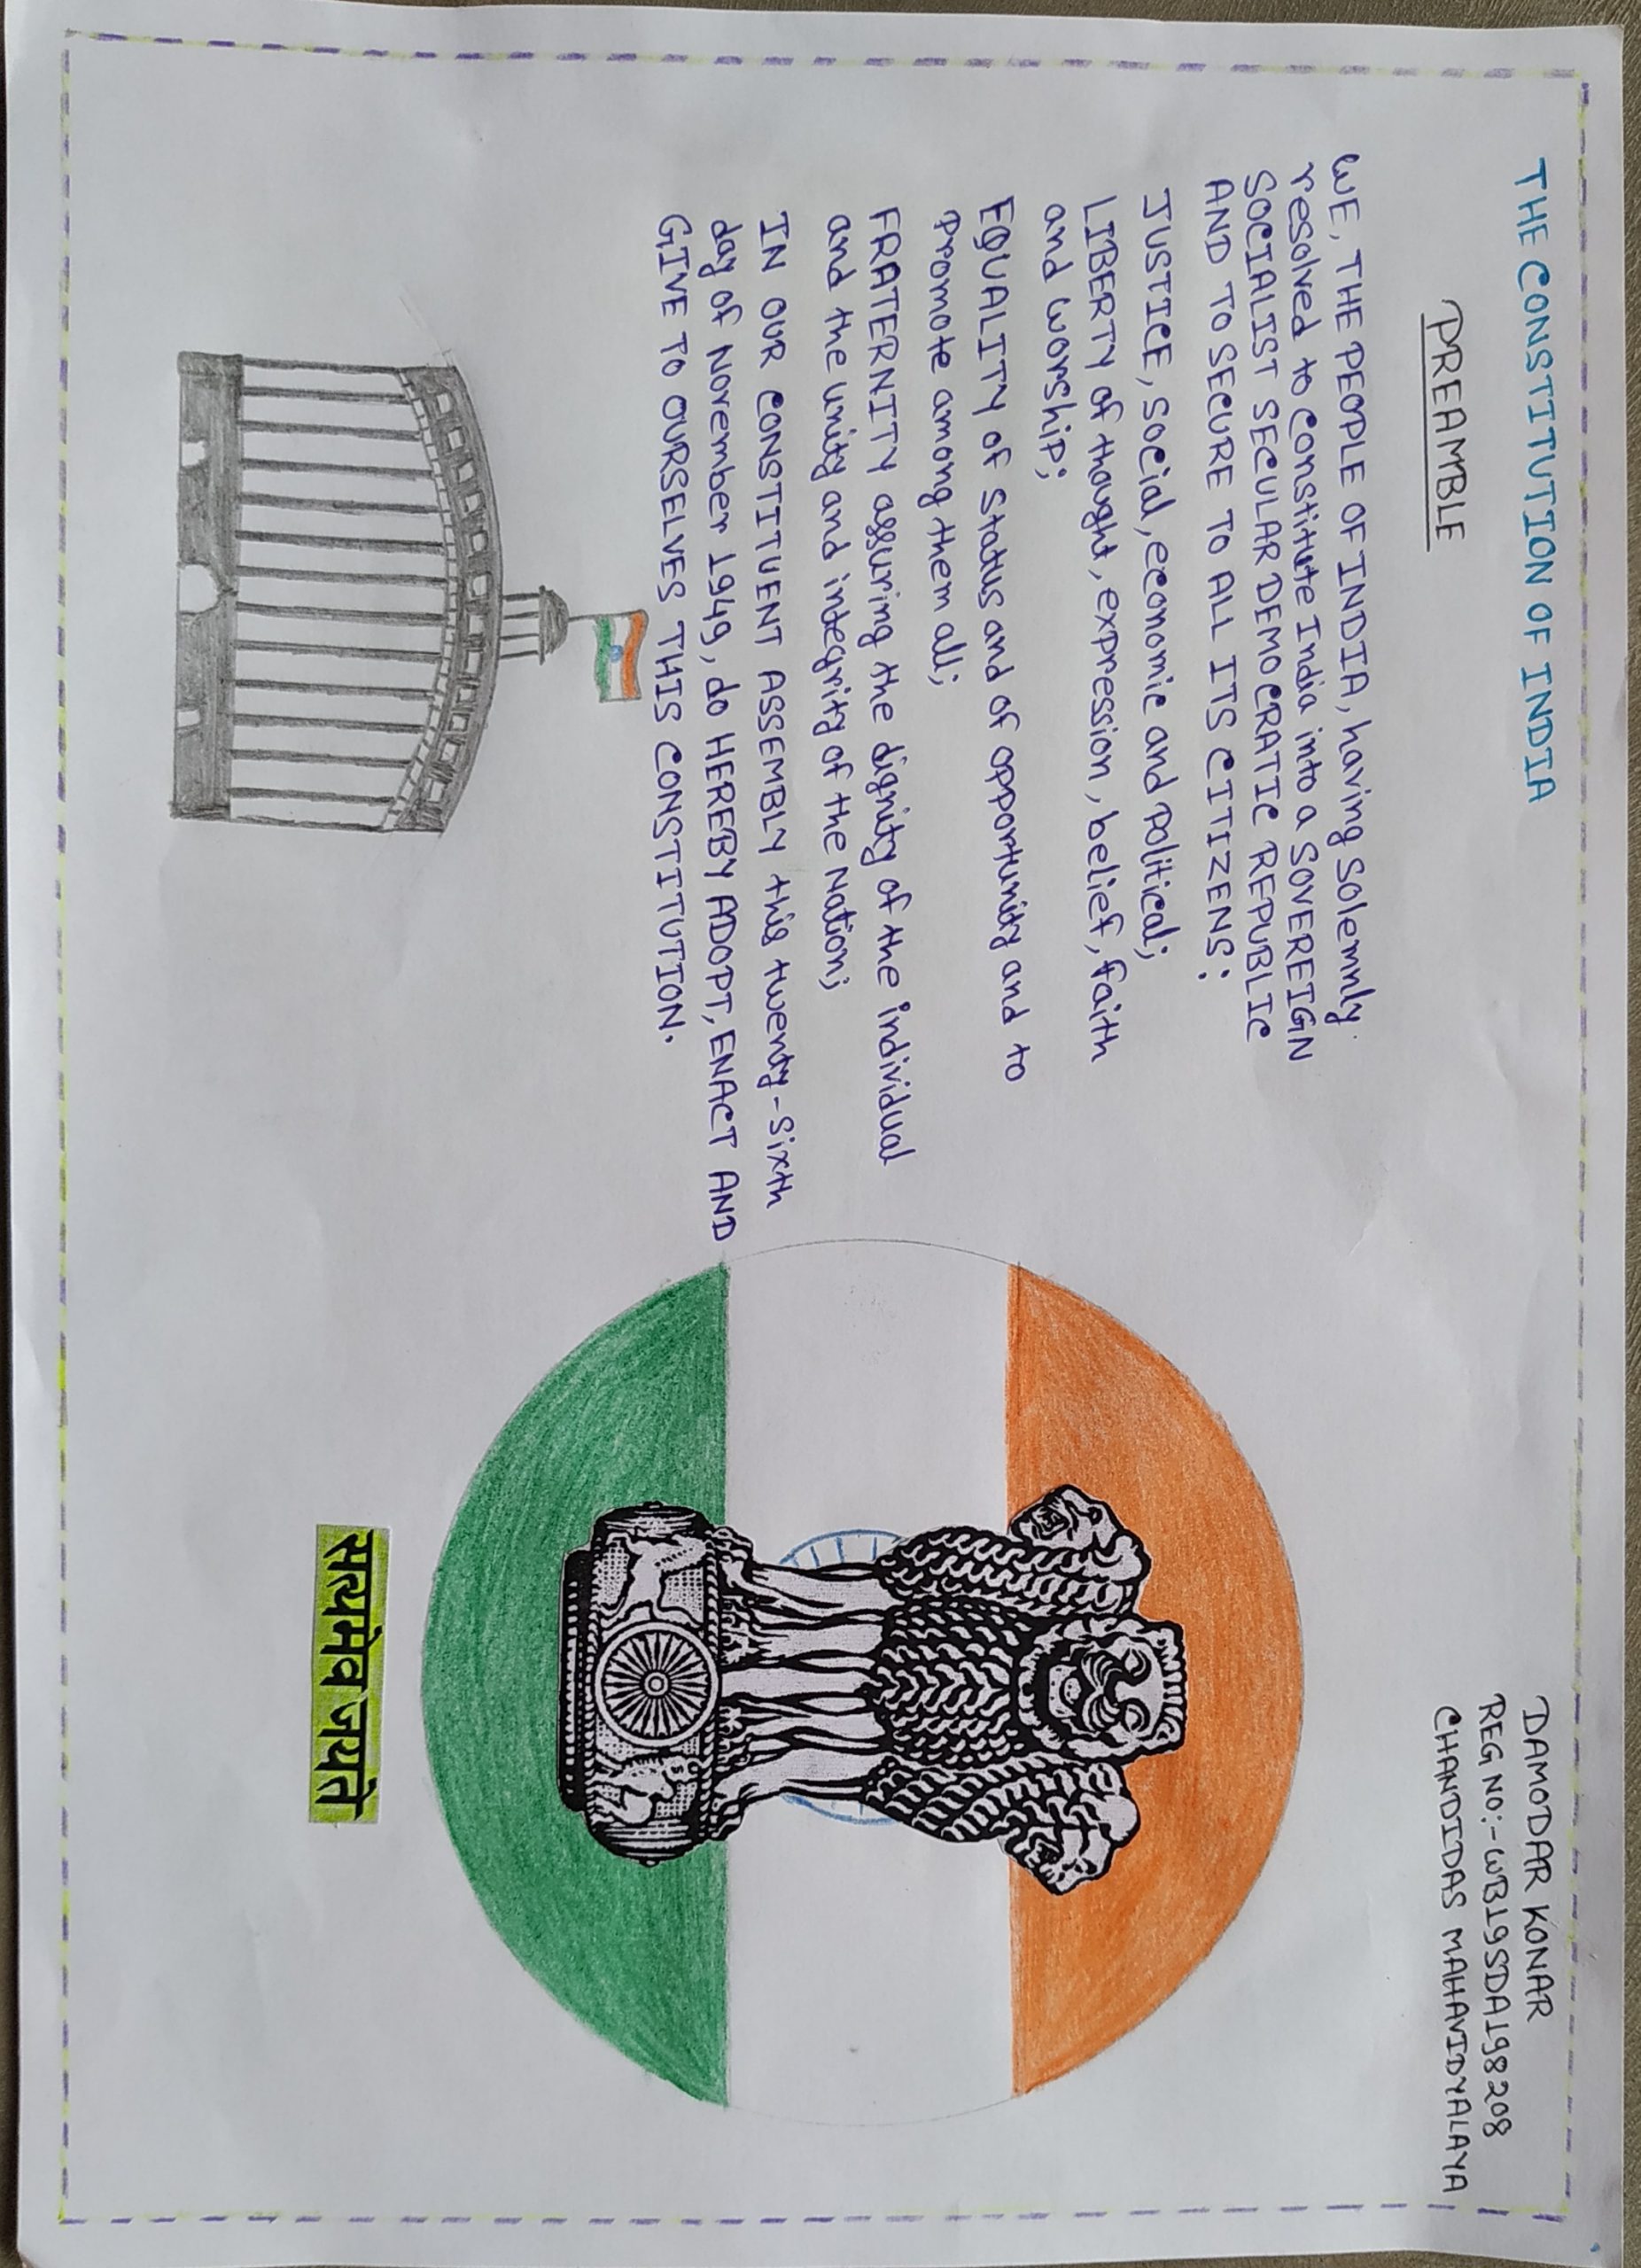 THE CONSTITUTION OF INDIA
DAMODAR KONAR
REG NO:-WB19SDA198208
CHANDIDAS MAHAVIDYALAYA
PREAMBLE
WE, THE PEOPLE OF INDIA, having Solemnly
resolved to constitute India into a SOVEREIGN
SOCIALIST SECULAR DEMOCRATIC REPUBLIC
AND TO SECURE TO ALL ITS CITIZENS:
JUSTICE, Social, economic and Political;
LIBERTY of thought, expression, belief, faith
and worship;
EQUALITY of Status and of opportunity and to
Promote among them all;
FRATERNITY assuring the dignity of the individual
and the unity and integrity of the Nation;
IN OUR CONSTITUENT ASSEMBLY this twenty-Sixth
day of November 1949, do HEREBY ADOPT, ENACT AND
GIVE TO OURSELVES THIS CONSTITUTION.
सत्यमेव जयते